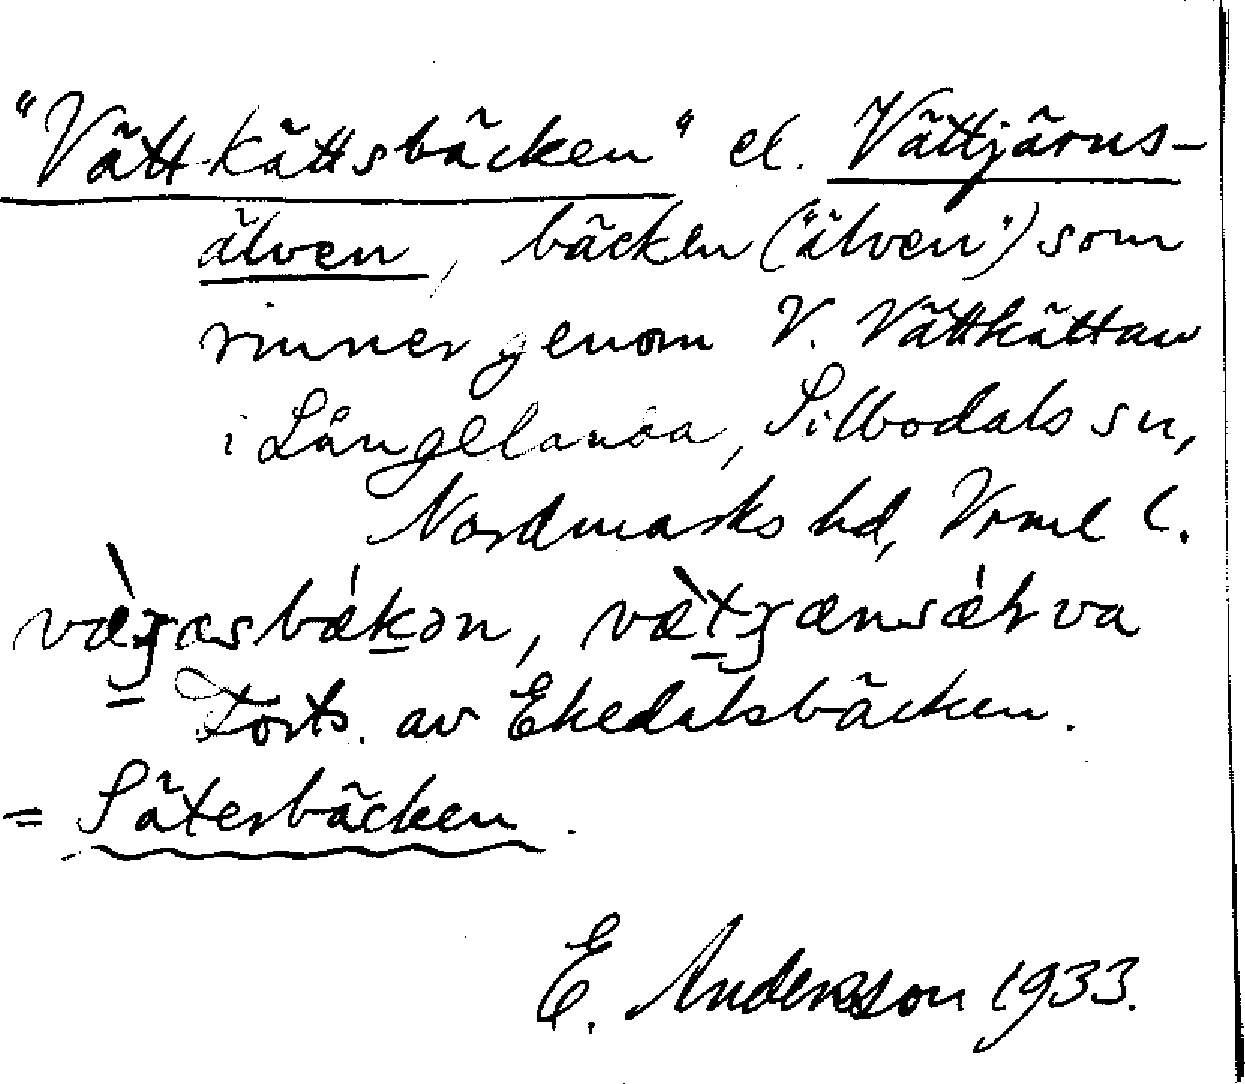 "Vättkättsbäcken" el. Vättjärns-
älven, bäcken ("älven") som
rinner genom V. Vättkättan
i Långelanda, Silbodals sn,
Nordmarks hd, Vrml l.
Forts. av Ekedalsbäcken.
= Säterbäcken.
E. Andersson 1933.